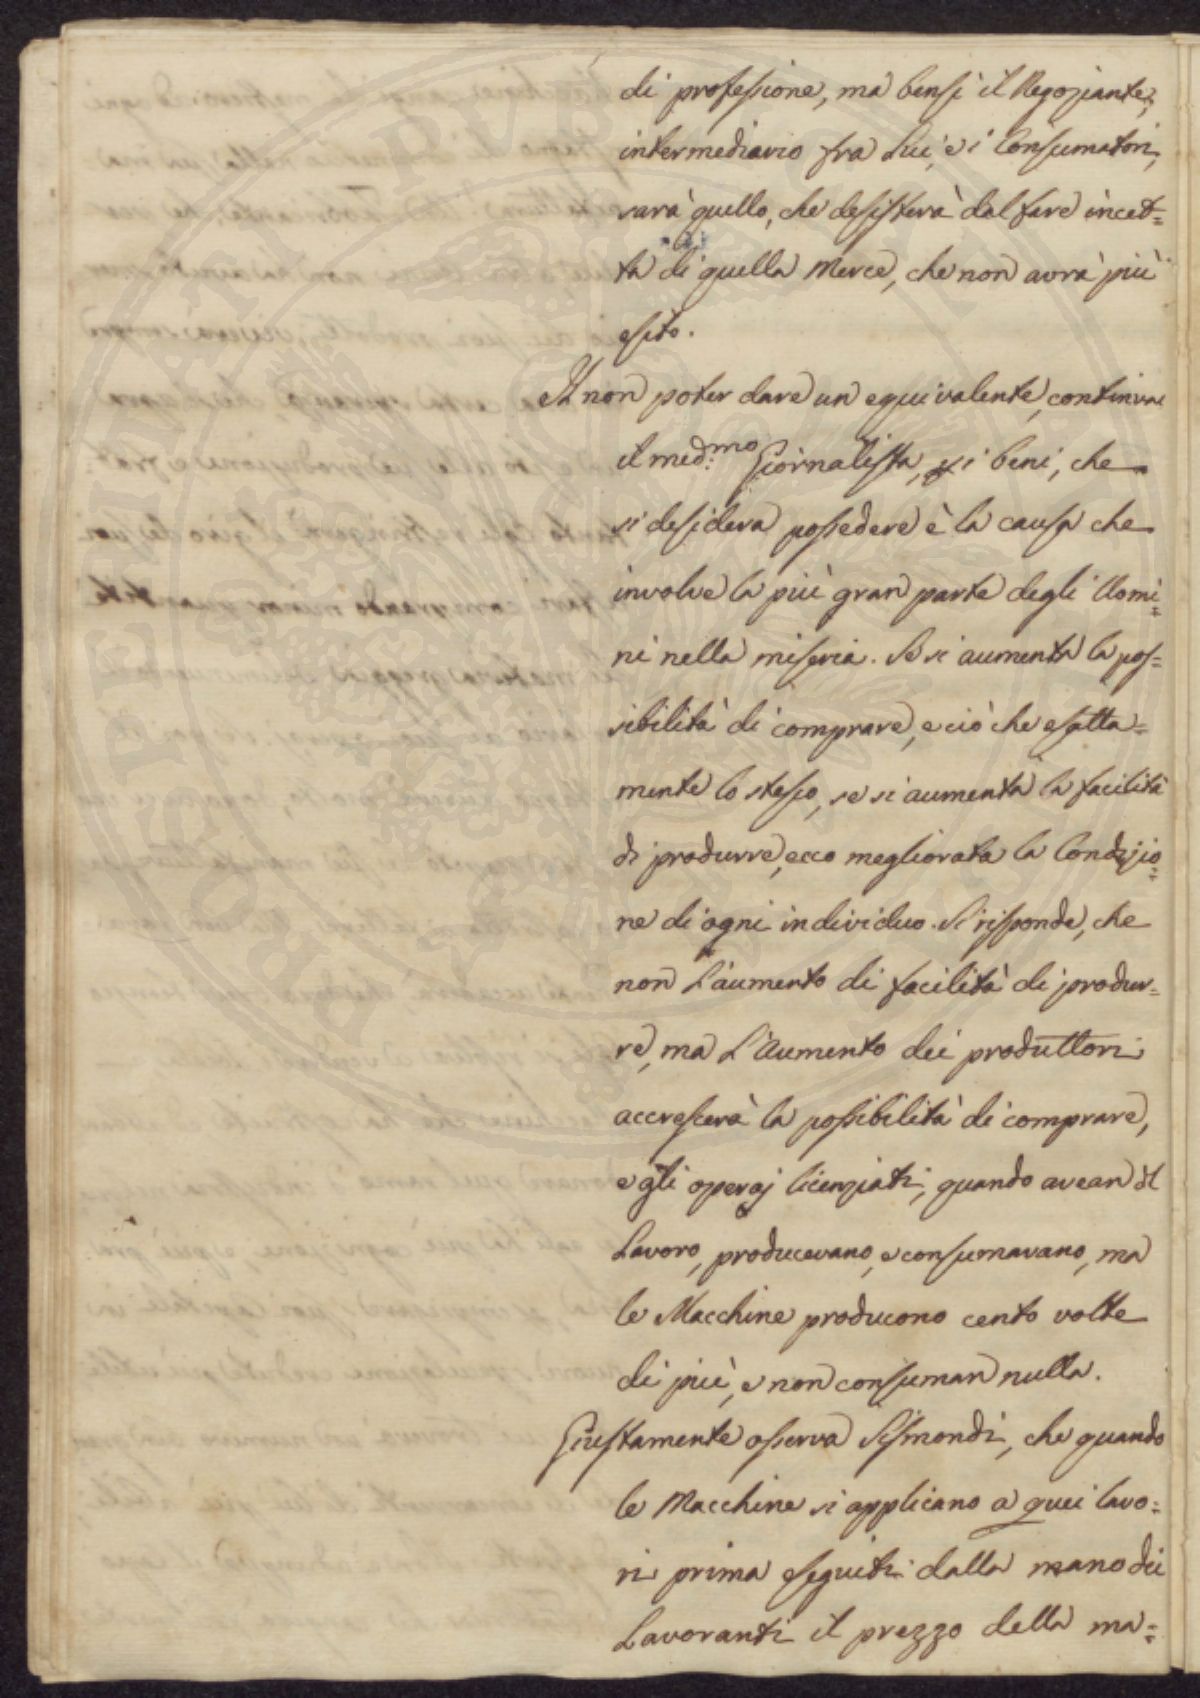 di professione, ma bensì il Negoziante,
intermediario fra Lui, e i Consumatori,
sarà quello, che desisterà dal fare incet=
ta di quella Merce, che non avrà più
esito.
Il non poter dare un equivalente, continua
il med:mo Giornalista, i beni, che
si desidera possedere è la causa che
involve la più gran parte degli Uomi=
ni nella miseria. Se si aumenta la pos=
sibilità di comprare, e ciò che esatta=
mente lo stesso, se si aumenta la facilità
di produrre, ecco megliorata la Condizio=
ne di ogni individuo. Si risponde, che
non l'aumento di facilità di produr=
re, ma l'Aumento dei produttori
accrescerà la possibilità di comprare,
e gli operaj licenziati, quando avean il
Lavoro, producevano, e consumavano, ma
le Macchine producono cento volte
di più, e non consuman nulla.
Giustamente osserva Sismondi, che quando
le Macchine si applicano a quei lavo=
ri prima eseguiti dalla mano dei
Lavoranti il prezzo della ma=